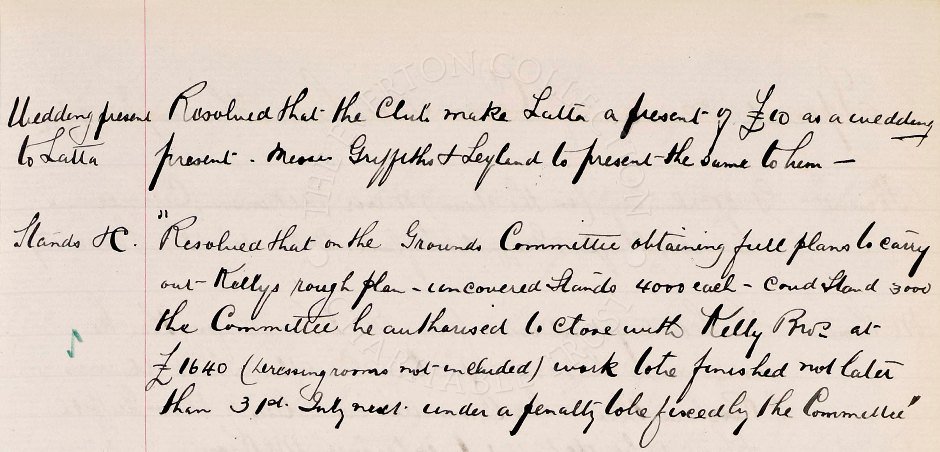 Wedding present Resolved that the Club make Latta a present of £10 as a wedding
to Latta present - Messrs Griffiths & Leyland to present the same to him —
Stands &c. "Resolved that on the Grounds Committee obtaining full plans to carry
out Kellys rough plan - uncovered Stands 4000 each - cov'd Stand 3000
the Committee be authorised to close with Kelly Bros at
£1640 (dressing rooms not included) work to be finished not later
than 31st July next under a penalty to be fixed by the Committee"